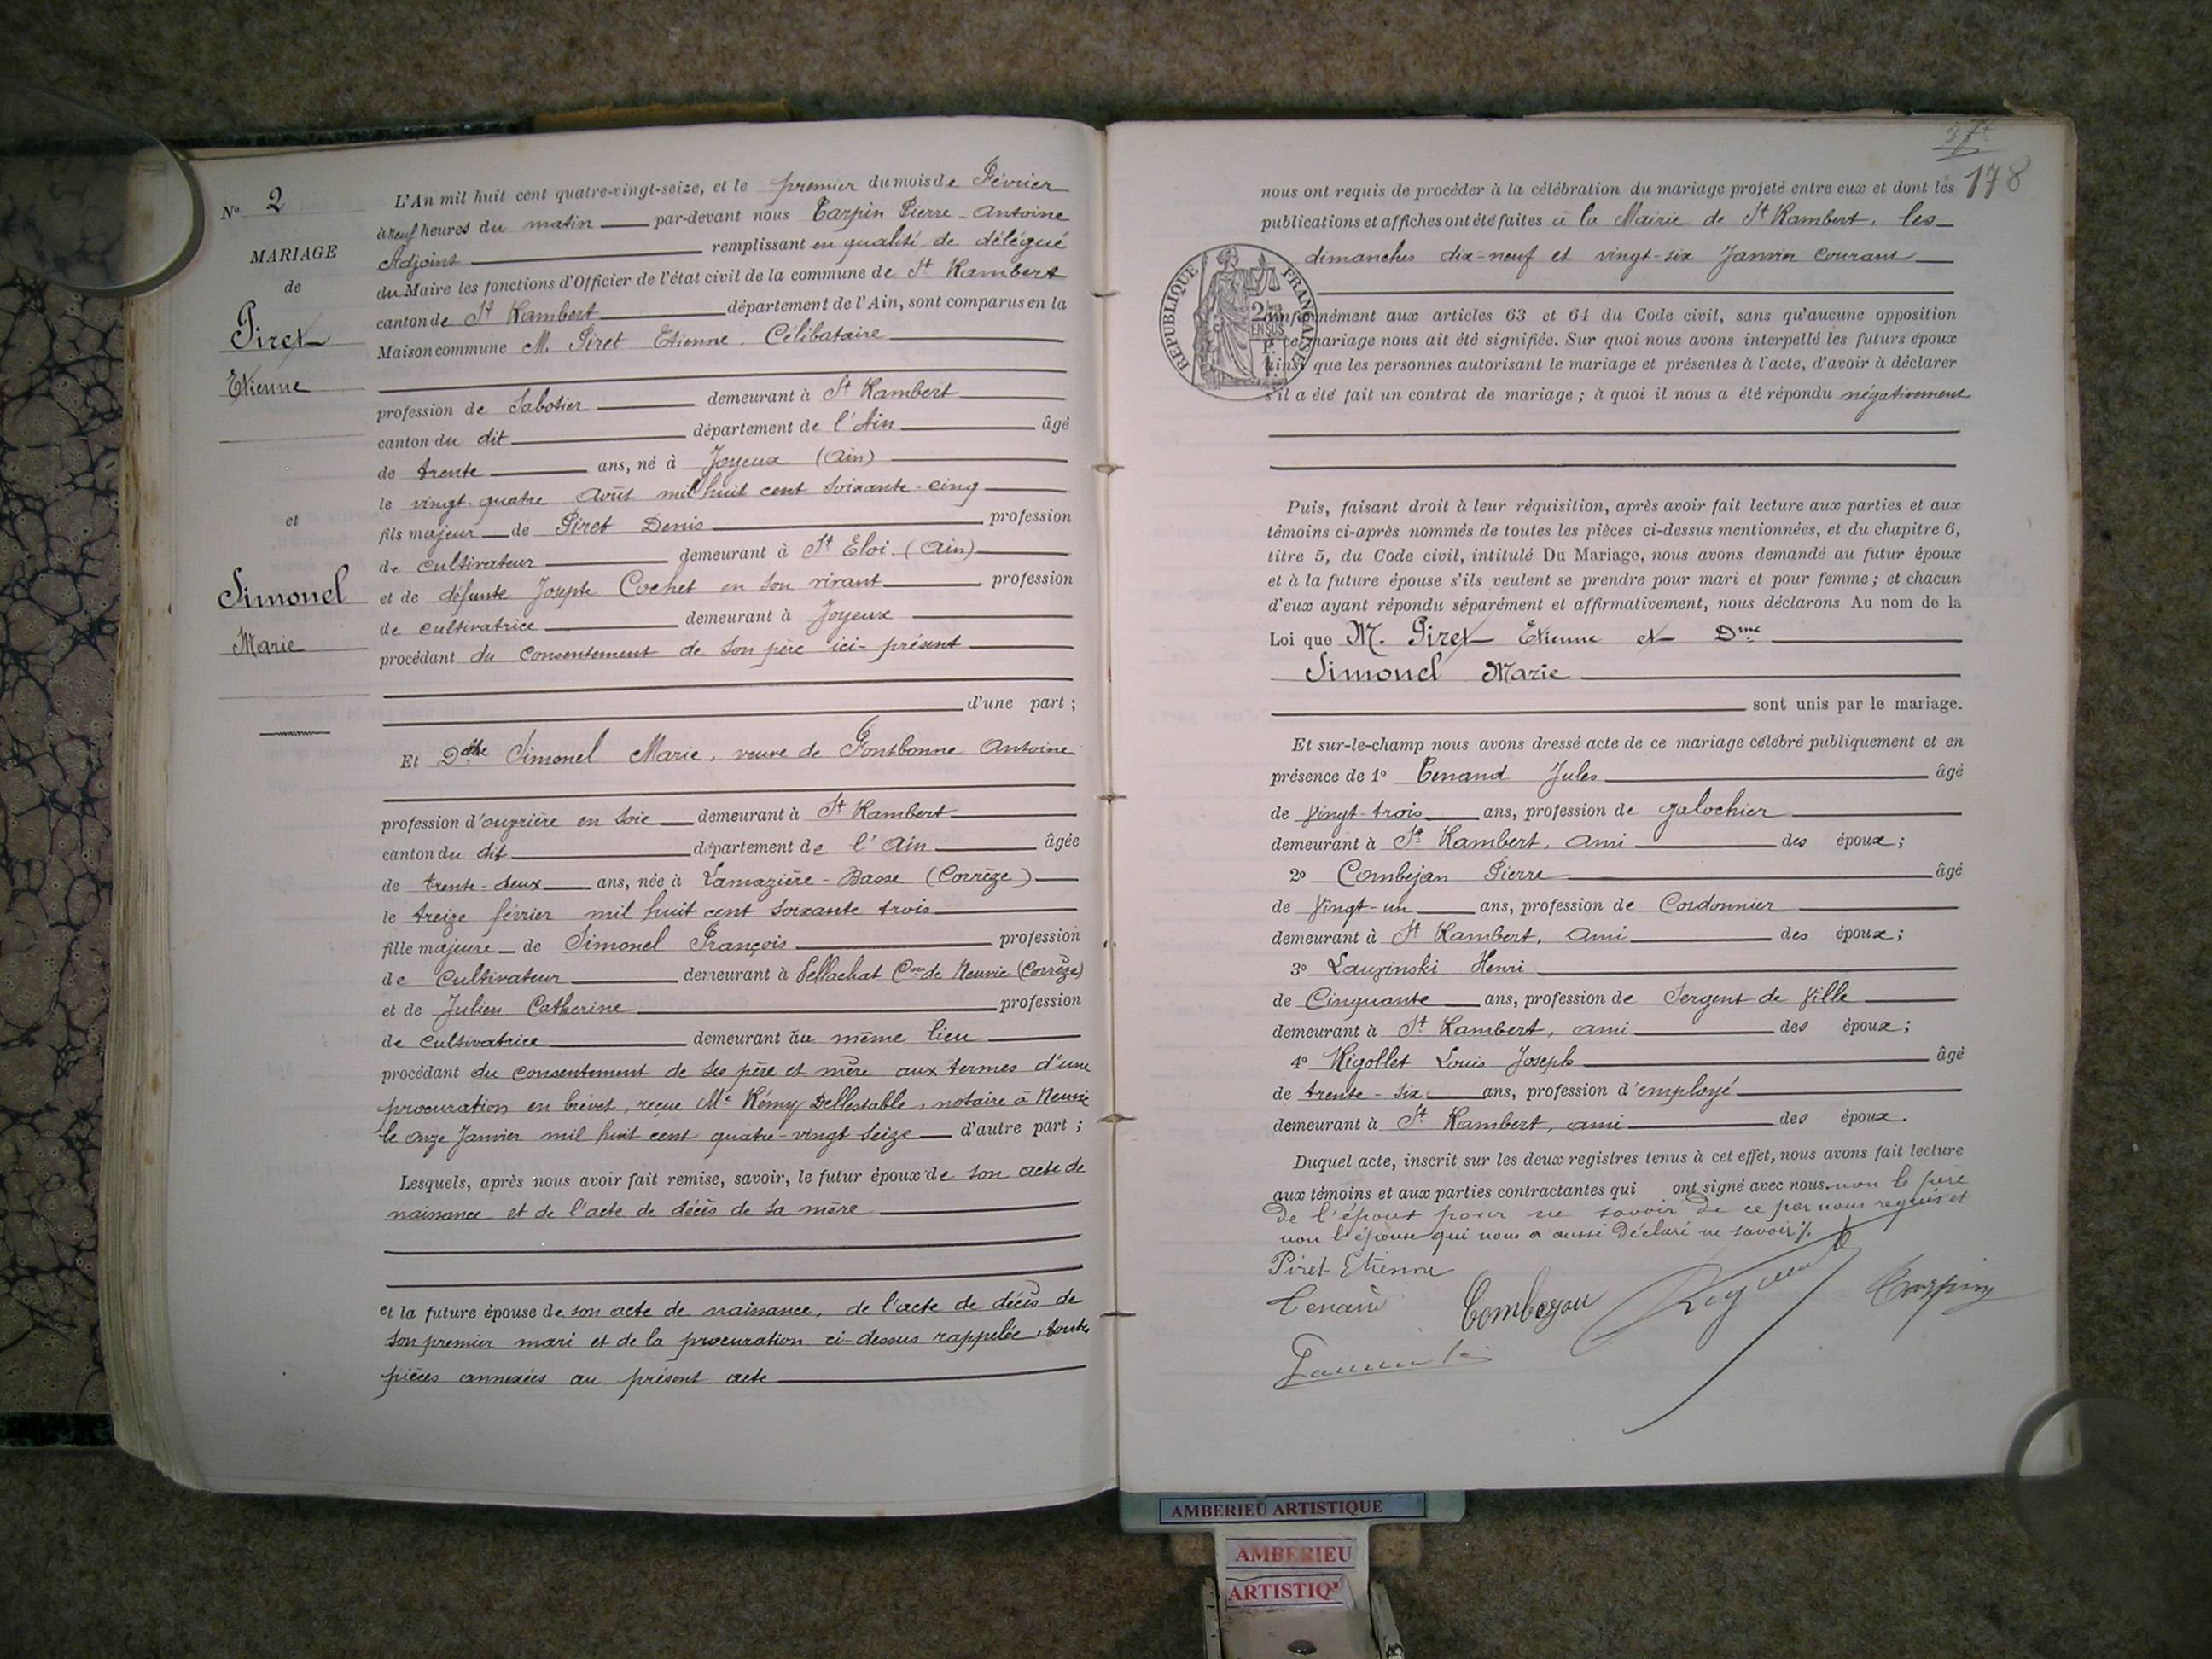 N° 2
MARIAGE
de
Piret
Etienne
et
Simonel
Marie
L'An mil huit cent quatre-vingt-seize, et le premier du mois de Février
à neuf heures du matin par-devant nous Tarpin Pierre-Antoine
Adjoint remplissant en qualité de délégué
du Maire les fonctions d'Officier de l'état civil de la commune de St Rambert
canton de St Rambert département de l'Ain, sont comparus en la
Maison commune M. Piret Etienne. Célibataire
profession de Sabotier demeurant à St Rambert
canton du dit département de l'Ain âgé
de trente ans, né à Joyeux (Ain)
le vingt-quatre Août mil huit cent soixante-cinq
fils majeur de Piret Denis profession
de cultivateur demeurant à St Eloi (Ain)
et de défunte Josephte Cochet en son vivant profession
de cultivatrice demeurant à Joyeux
procédant du consentement de son père ici-présent
d'une part ;
Et Dme Simonel Marie, veuve de Fontbonne Antoine
profession d'ouvrière en soie demeurant à St Rambert
canton du dit département de l'Ain âgée
de trente-deux ans, née à Lamazière-Basse (Corrèze)
le treize février mil huit cent soixante trois
fille majeure de Simonel François profession
de cultivateur demeurant à Pellachat Cne de Neuvic (Corrèze)
et de Julien Catherine profession
de cultivatrice demeurant au même lieu
procédant du consentement de ses père et mère aux termes d'une
procuration en brévet, reçue Me Rémy Dellestable, notaire à Neuvic
le onze Janvier mil huit cent quatre-vingt seize d'autre part ;
Lesquels, après nous avoir fait remise, savoir, le futur époux de son acte de
naissance et de l'acte de décès de sa mère
et la future épouse de son acte de naissance, de l'acte de décès de
son premier mari et de la procuration ci-dessus rappelée, toutes
pièces annexées au présent acte
178
nous ont requis de procéder à la célébration du mariage projeté entre eux et dont les
publications et affiches ont été faites à la Mairie de St Rambert, les
dimanches dix-neuf et vingt-six Janvier courant
REPUBLIQUE FRANÇAISE
conformément aux articles 63 et 64 du Code civil, sans qu'aucune opposition
à ce mariage nous ait été signifiée. Sur quoi nous avons interpellé les futurs époux
ainsi que les personnes autorisant le mariage et présentes à l'acte, d'avoir à déclarer
s'il a été fait un contrat de mariage ; à quoi il nous a été répondu négativement
Puis, faisant droit à leur réquisition, après avoir fait lecture aux parties et aux
témoins ci-après nommés de toutes les pièces ci-dessus mentionnées, et du chapitre 6,
titre 5, du Code civil, intitulé Du Mariage, nous avons demandé au futur époux
et à la future épouse s'ils veulent se prendre pour mari et pour femme ; et chacun
d'eux ayant répondu séparément et affirmativement, nous déclarons Au nom de la
Loi que M. Piret Etienne et Dme
Simonel Marie
sont unis par le mariage.
Et sur-le-champ nous avons dressé acte de ce mariage célébré publiquement et en
présence de 1° Tenand Jules âgé
de Vingt-trois ans, profession de galochier
demeurant à St Rambert, ami des époux ;
2° Combejan Pierre âgé
de Vingt-un ans, profession de Cordonnier
demeurant à St Rambert, ami des époux ;
3° Lauxinski Henri
de Cinquante ans, profession de Sergent de Ville
demeurant à St Rambert, ami des époux ;
4° Rigollet Louis Joseph âgé
de trente-six ans, profession d'employé
demeurant à St Rambert, ami des époux.
Duquel acte, inscrit sur les deux registres tenus à cet effet, nous avons fait lecture
aux témoins et aux parties contractantes qui ont signé avec nous non le père
De l'époux pour ne savoir de ce par nous requis et
non l'épouse qui nous a aussi Déclaré ne savoir
Piret Etienne
Tenand Combejan Tarpin
AMBERIEU ARTISTIQUE
AMBERIEU
ARTISTIQ